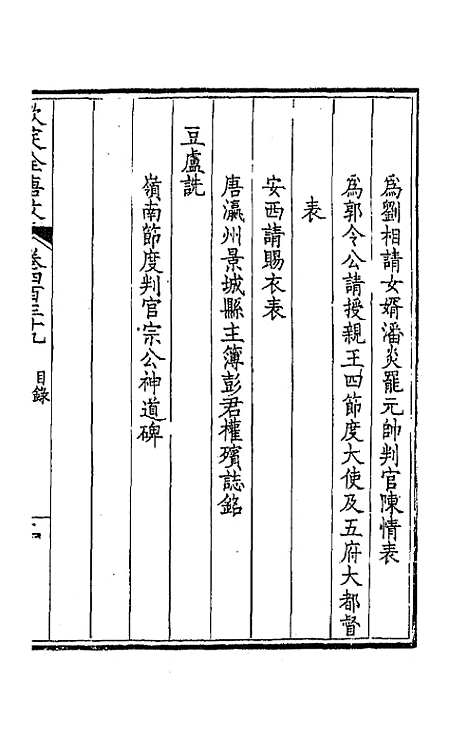 為劉相請女婿潘炎罷元帥判官陳情表
為郭令公請授親王四節度大使及五府大都督
表
安西請賜衣表
唐瀛州景城縣主簿彭君權殯誌銘
豆盧詵
嶺南節度判官宗公神道碑
欽定全唐文 卷四百三十九 目錄